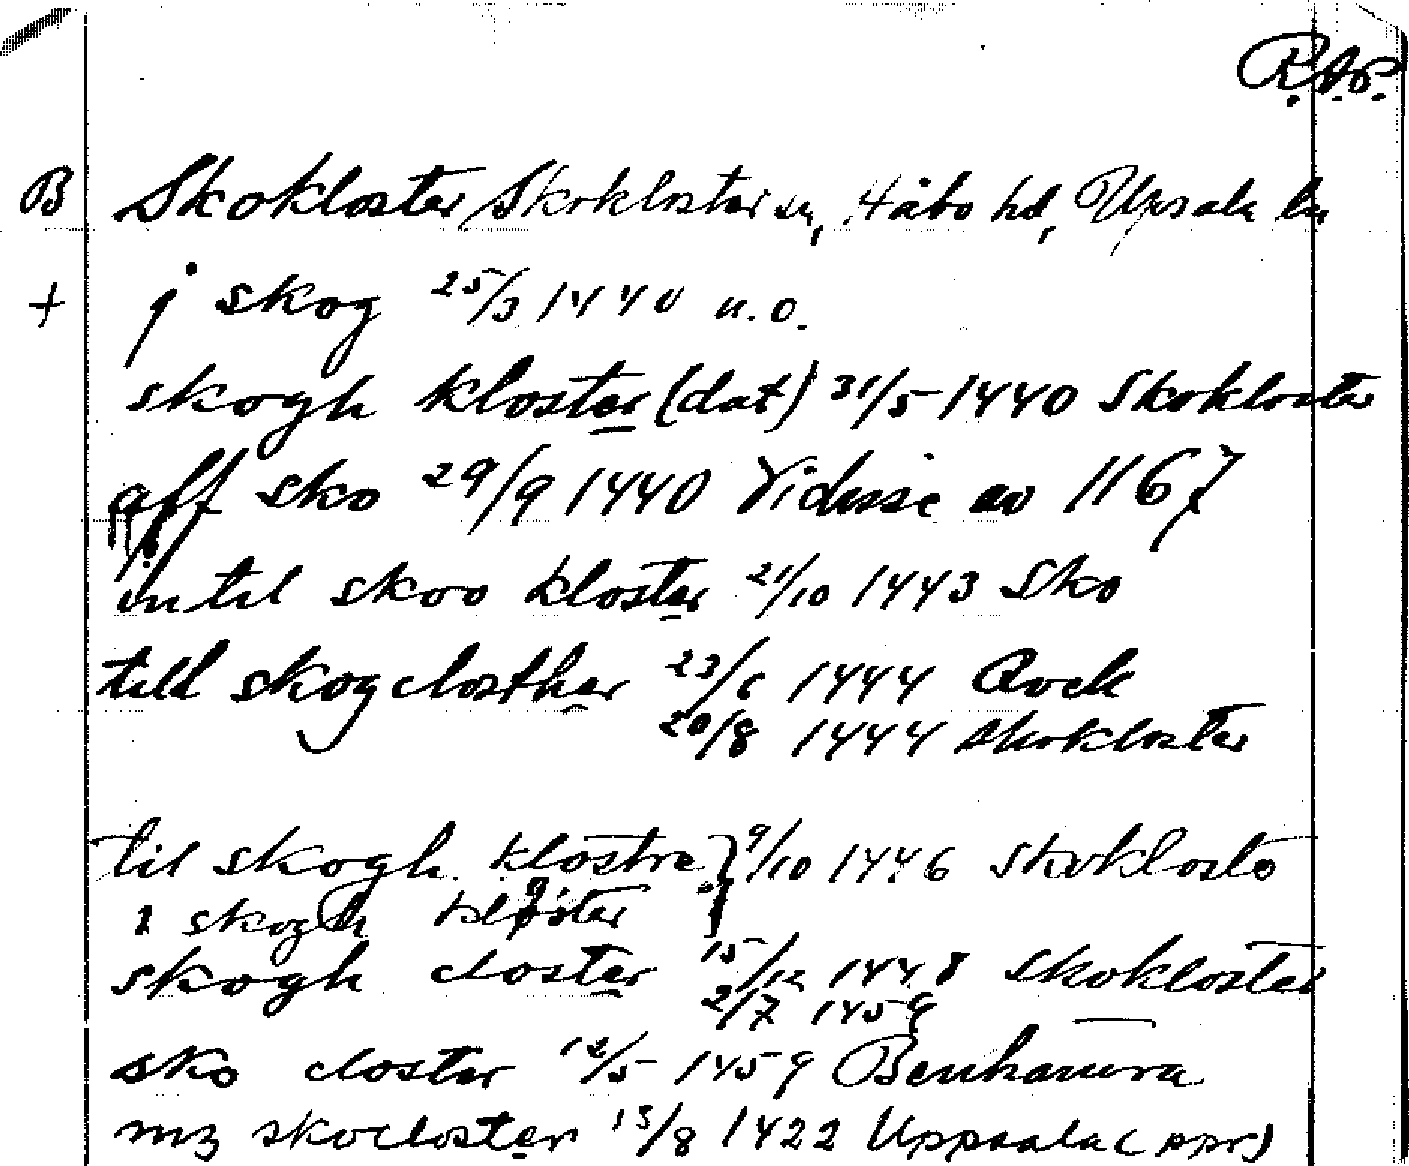 R.A.P.
B Skokloster Skokloster sn, Håbo hd, Upsala ln
+ j skog 25/3 1440 u.o.
skogh kloster (dat) 31/5 1440 Skokloster
aff sko 29/9 1440 Vidisse av 1167
in til skoo kloster 21/10 1443 Sko
till skogclosther 23/6 1444
20/8 1444 Skokloster
til skogh klostre } 9/10 1446 Skoklostr
i skogh kloster
skogh closter 15/12 1448 Skokloster
2/7 1459
sko closter 12/5 1459 Benhamra
mz skocloster 13/8 1422 Uppsala (ppr)